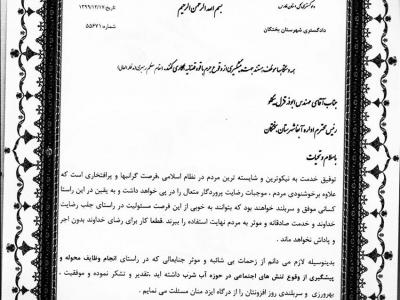 بسم الله الرحمن الرحیم
تاریخ ۱۳۹۹/۱۲/۱۷
شماره: ۵۵۶۷۱
دادگستری شهرستان بختگان
جناب آقای مهندس ابوذر قزل بیگلو
رئیس محترم اداره آبفا شهرستان بختگان
با سلام و تحیات
توفیق خدمت به نیکوترین و شایسته ترین مردم در نظام اسلامی ،فرصت گرانبها و پرافتخاری است که
علاوه برخشنودی مردم ، موجبات رضایت پروردگار متعال را در پی خواهد داشت و به یقین در این راستا
کسانی موفق و سربلند خواهند بود که بتوانند به خوبی از این فرصت مسئولیت در راستای جلب رضایت
خداوند و خدمت صادقانه و موثر به مردم نهایت استفاده را ببرند .قطعا کار برای رضای خداوند بدون اجر
و پاداش نخواهد ماند .
بدینوسیله لازم می دانم از زحمات بی شائبه و موثر جنابعالی که در راستای انجام وظایف محوله و
پیشگیری از وقوع تنش های اجتماعی در حوزه آب شرب داشته اید ،تقدیر و تشکر نموده و موفقیت ،
بهروزی و سربلندی روز افزونتان را از درگاه ایزد منان مسئلت می نمایم .